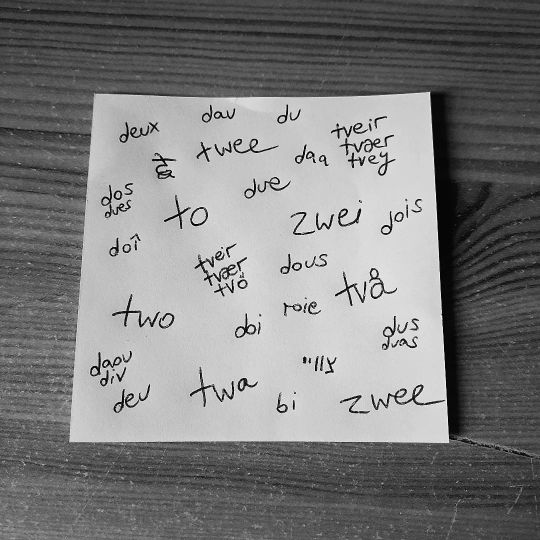 deux
dau
du
tveir
tvær
tvey
twee
daa
due
dos
dues
to
zwei
dois
doî
tveir
tvær
tvö
dous
två
two
roie
dus
duas
daou
div
deu
twa
bi
zwee